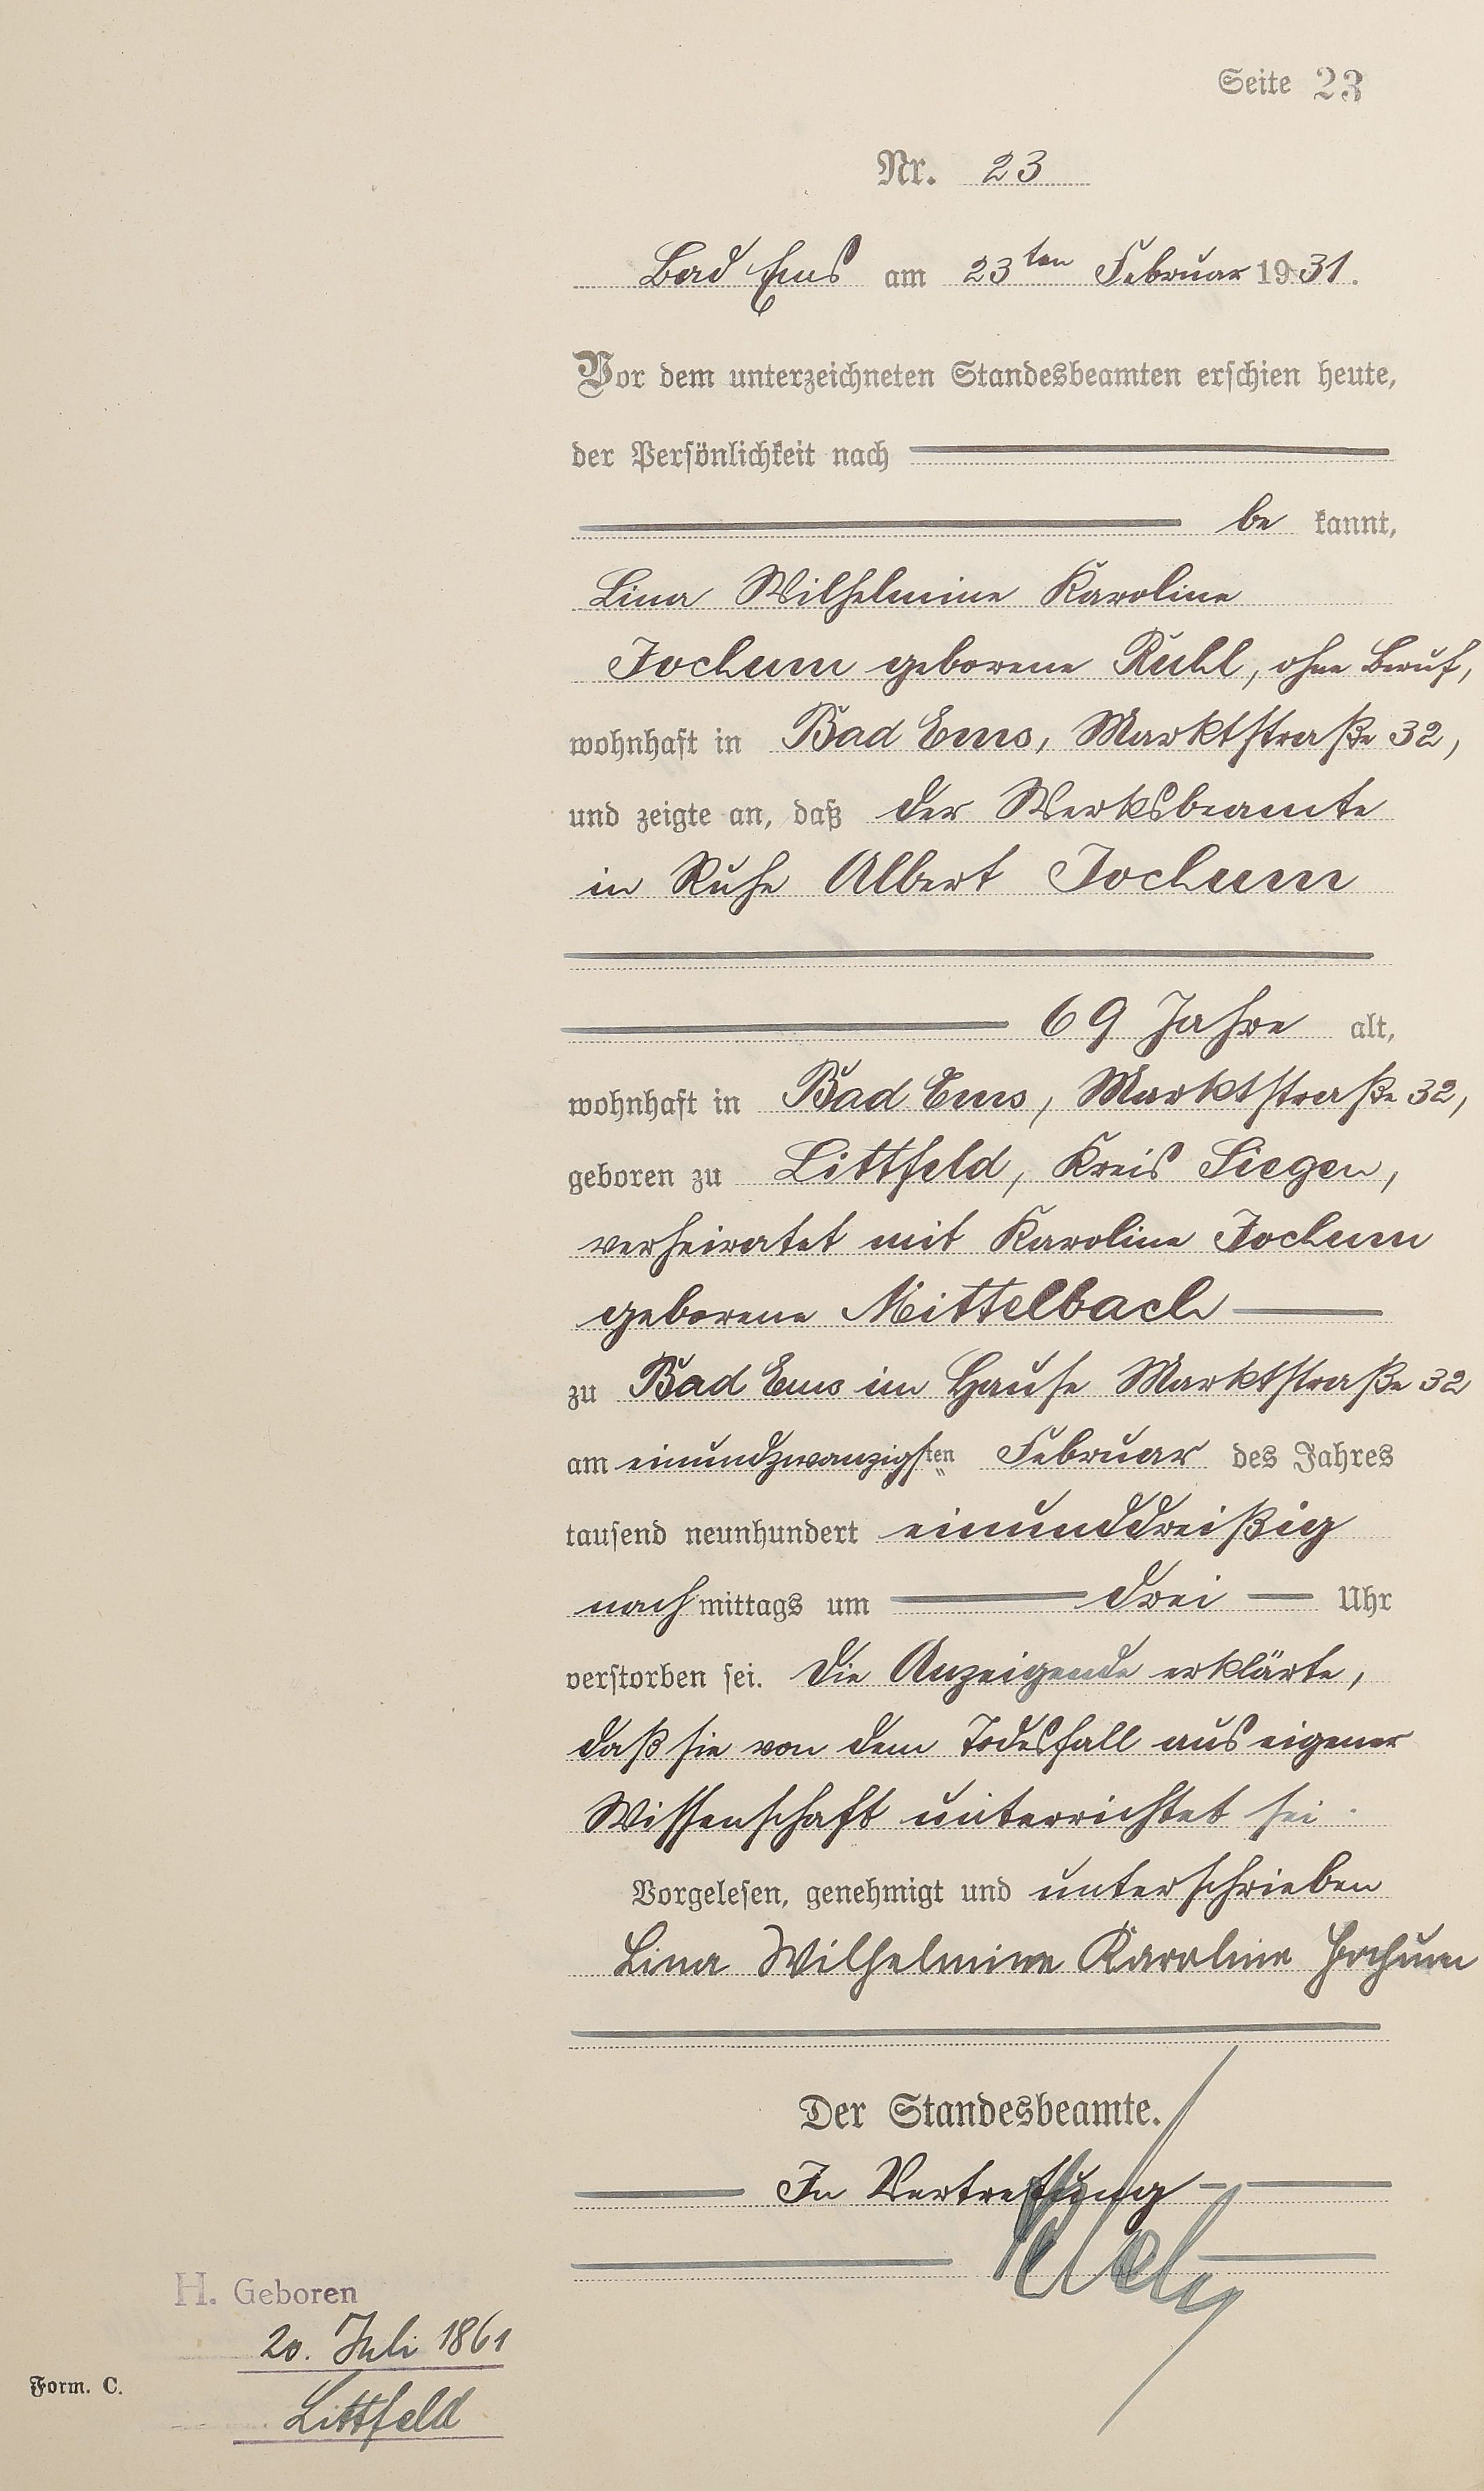 Seite 23
Nr. 23
Bad Ems am 23ten Februar 1931.
Vor dem unterzeichneten Standesbeamten erschien heute,
der Persönlichkeit nach
be kannt,
Lina Wilhelmine Karoline
Jochum geborene Ruhl, ohne Beruf,
wohnhaft in Bad Ems, Marktstraße 32,
und zeigte an, daß der Werksbeamte
in Ruhe Albert Jochum
69 Jahre alt,
wohnhaft in Bad Ems, Marktstraße 32,
geboren zu Littfeld, Kreis Siegen,
verheiratet mit Karoline Jochum
geborene Mittelbach
zu Bad Ems im Hause Marktstraße 32
am einundzwanzigsten Februar des Jahres
tausend neunhundert einunddreißig
nachmittags um drei Uhr
verstorben sei. Die Anzeigende erklärte,
daß sie von dem Todesfall aus eigener
Wissenschaft unterrichtet sei.
Vorgelesen, genehmigt und unterschrieben
Lina Wilhelmine Karoline Jochum
Der Standesbeamte.
In Vertretung
H. Geboren
20. Juli 1861
Littfeld
Form. C.